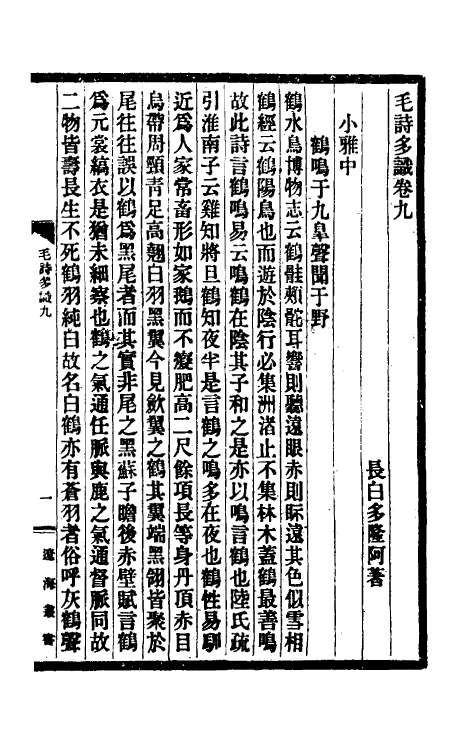 毛詩多識卷九
長白多隆阿著
小雅中
鶴鳴于九臯聲聞于野
鶴水鳥博物志云鶴骽頰䯄耳響則聽遠眼赤則眎遠其色似雪相
鶴經云鶴陽鳥也而遊於陰行必集洲渚止不集林木蓋鶴最善鳴
故此詩言鶴鳴易云鳴鶴在陰其子和之是亦以鳴言鶴也陸氏疏
引淮南子云雞知將旦鶴知夜半是言鶴之鳴多在夜也鶴性易馴
近爲人家常畜形如家鵝而不癡肥高二尺餘項長等身丹頂赤目
烏帶周頸靑足高翹白羽黑翼今見歛翼之鶴其翼端黑翎皆聚於
尾往往誤以鶴爲黑尾者而其實非尾之黑蘇子瞻後赤壁賦言鶴
爲元裳縞衣是猶未細察也鶴之氣通任脈與鹿之氣通督脈同故
二物皆壽長生不死鶴羽純白故名白鶴亦有蒼羽者俗呼灰鶴聲
毛詩多識九
一
遼海叢書